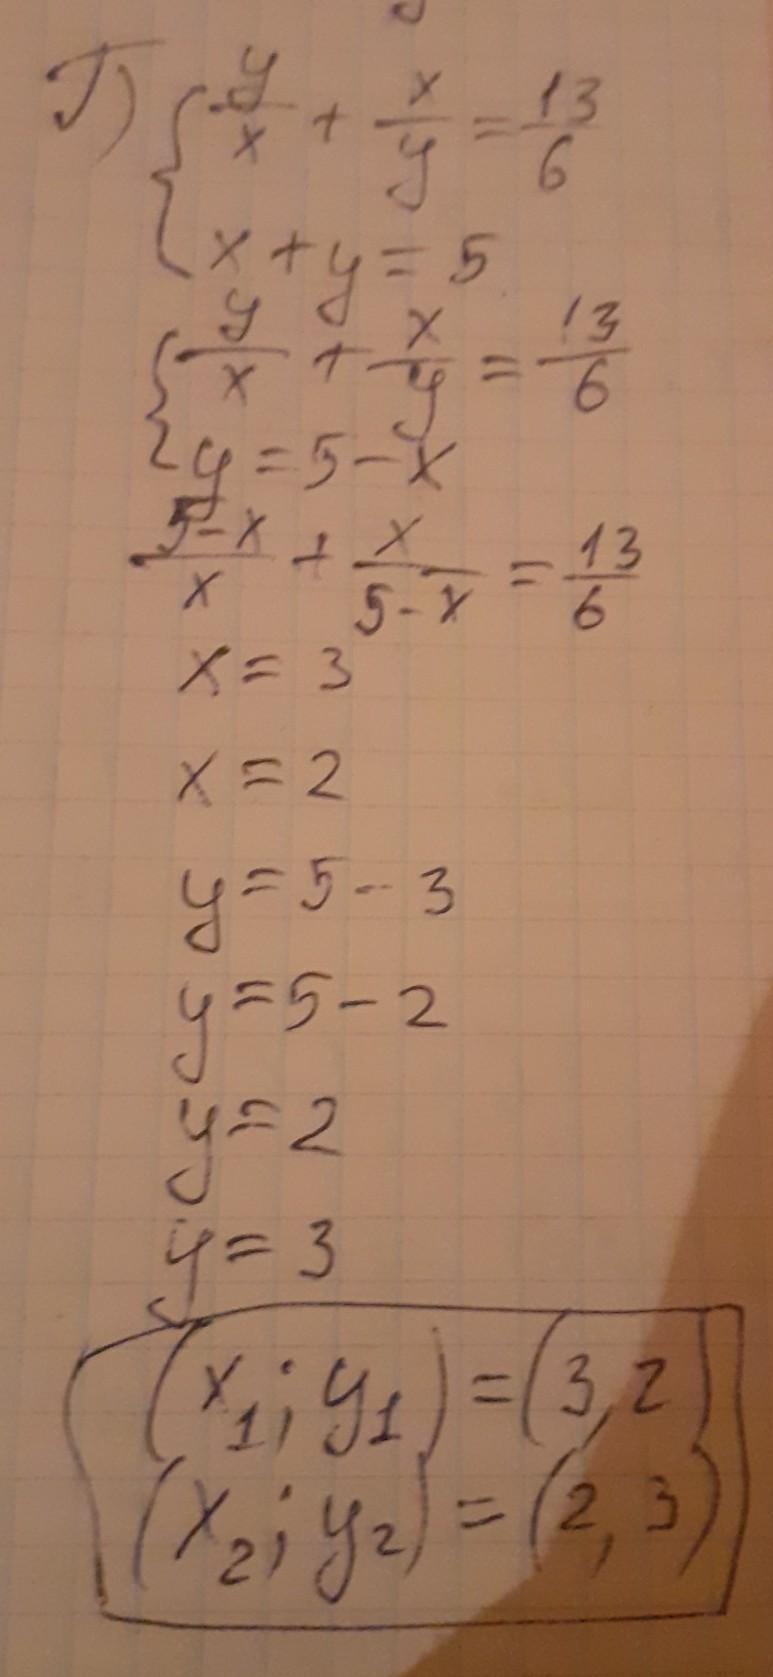 Г) { y/x + x/y = 13/6
x + y = 5
{ y/x + x/y = 13/6
y = 5 - x
5-x/x + x/5-x = 13/6
x = 3
x = 2
y = 5 - 3
y = 5 - 2
y = 2
y = 3
(x₁; y₁) = (3, 2)
(x₂; y₂) = (2, 3)